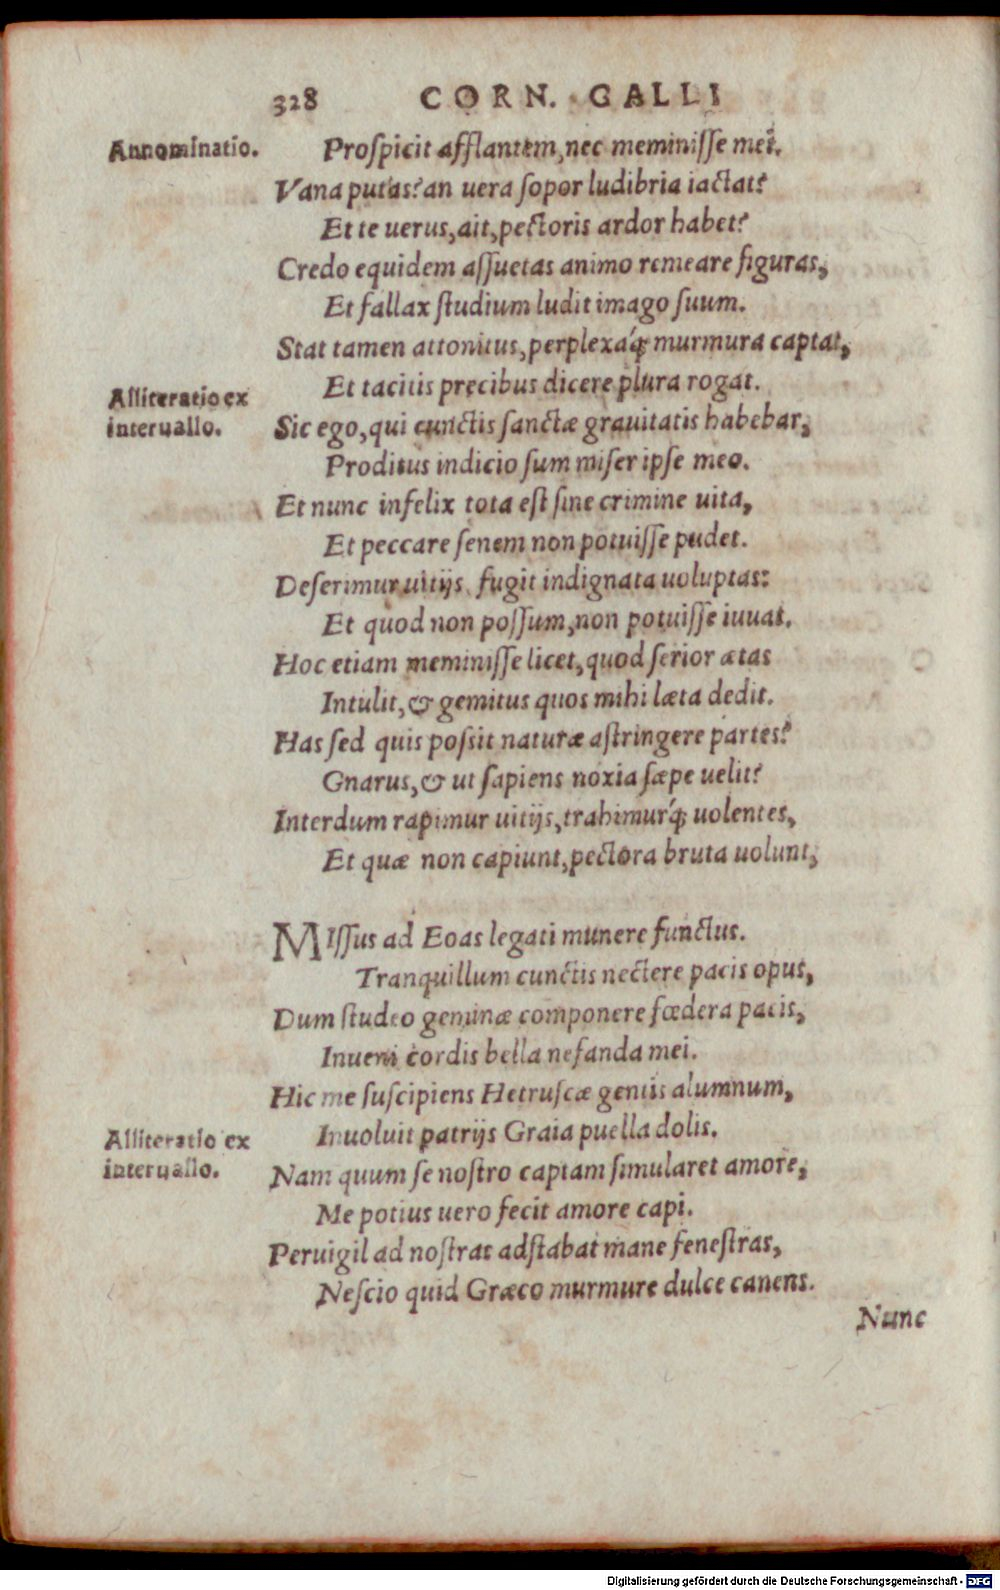 328 CORN. GALLI
Annominatio.
Proſpicit afflantem, nec meminiſſe mei.
Vana putas? an uera ſopor ludibria iactat?
Et te uerus, ait, pectoris ardor habet?
Credo equidem aſſuetas animo remeare figuras,
Et fallax ſtudium ludit imago ſuum.
Stat tamen attonitus, perplexaq́; murmura captat,
Et tacitis precibus dicere plura rogat.
Alliteratio ex
interuallo.
Sic ego, qui cunctis ſanctæ grauitatis habebar,
Proditus indicio ſum miſer ipſe meo.
Et nunc infelix tota eſt ſine crimine uita,
Et peccare ſenem non potuiſſe pudet.
Deſerimur uitijs, fugit indignata uoluptas:
Et quod non poſſum, non potuiſſe iuuat.
Hoc etiam meminiſſe licet, quod ſerior ætas
Intulit, & gemitus quos mihi læta dedit.
Has ſed quis poſsit naturæ aſtringere partes?
Gnarus, & ut ſapiens noxia ſæpe uelit?
Interdum rapimur uitijs, trahimurq́; uolentes,
Et quæ non capiunt, pectora bruta uolunt,
MIſſus ad Eoas legati munere functus.
Tranquillum cunctis nectere pacis opus,
Dum ſtudeo geminæ componere fœdera pacis,
Inueni cordis bella nefanda mei.
Hic me ſuſcipiens Hetruſcæ gentis alumnum,
Alliteratio ex
interuallo.
Inuoluit patrijs Graia puella dolis.
Nam quum ſe noſtro captam ſimularet amore,
Me potius uero fecit amore capi.
Peruigil ad noſtras adſtabat mane feneſtras,
Neſcio quid Græco murmure dulce canens.
Nunc
Digitalisierung gefördert durch die Deutsche Forschungsgemeinschaft - DFG